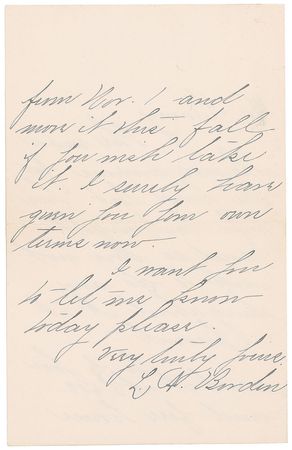 from Nov. 1 and
move it this fall
if you wish take
it. I surely have
given you your own
terms now.
I want you
to let me know
today please.
Very truly yours
L. A. Borden